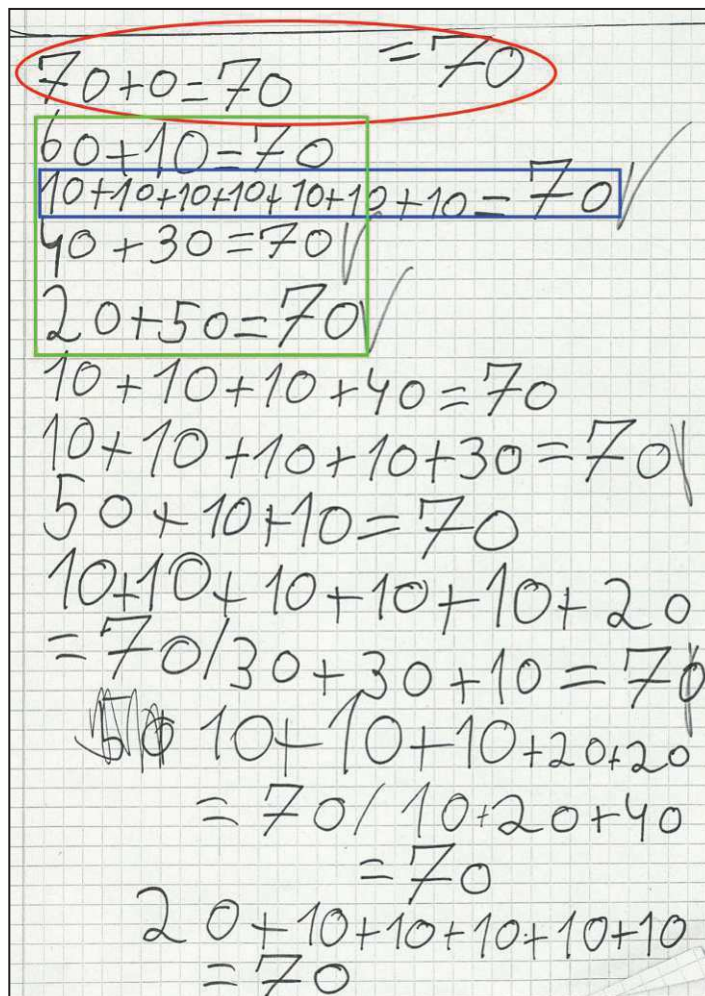 70+0=70 =70
60+10=70
10+10+10+10+10+10+10=70
40+30=70
20+50=70
10+10+10+40=70
10+10+10+10+30=70
50+10+10=70
10+10+10+10+10+20
=70/30+30+10=70
10+10+10+20+20
=70/10+20+40
=70
20+10+10+10+10+10
=70